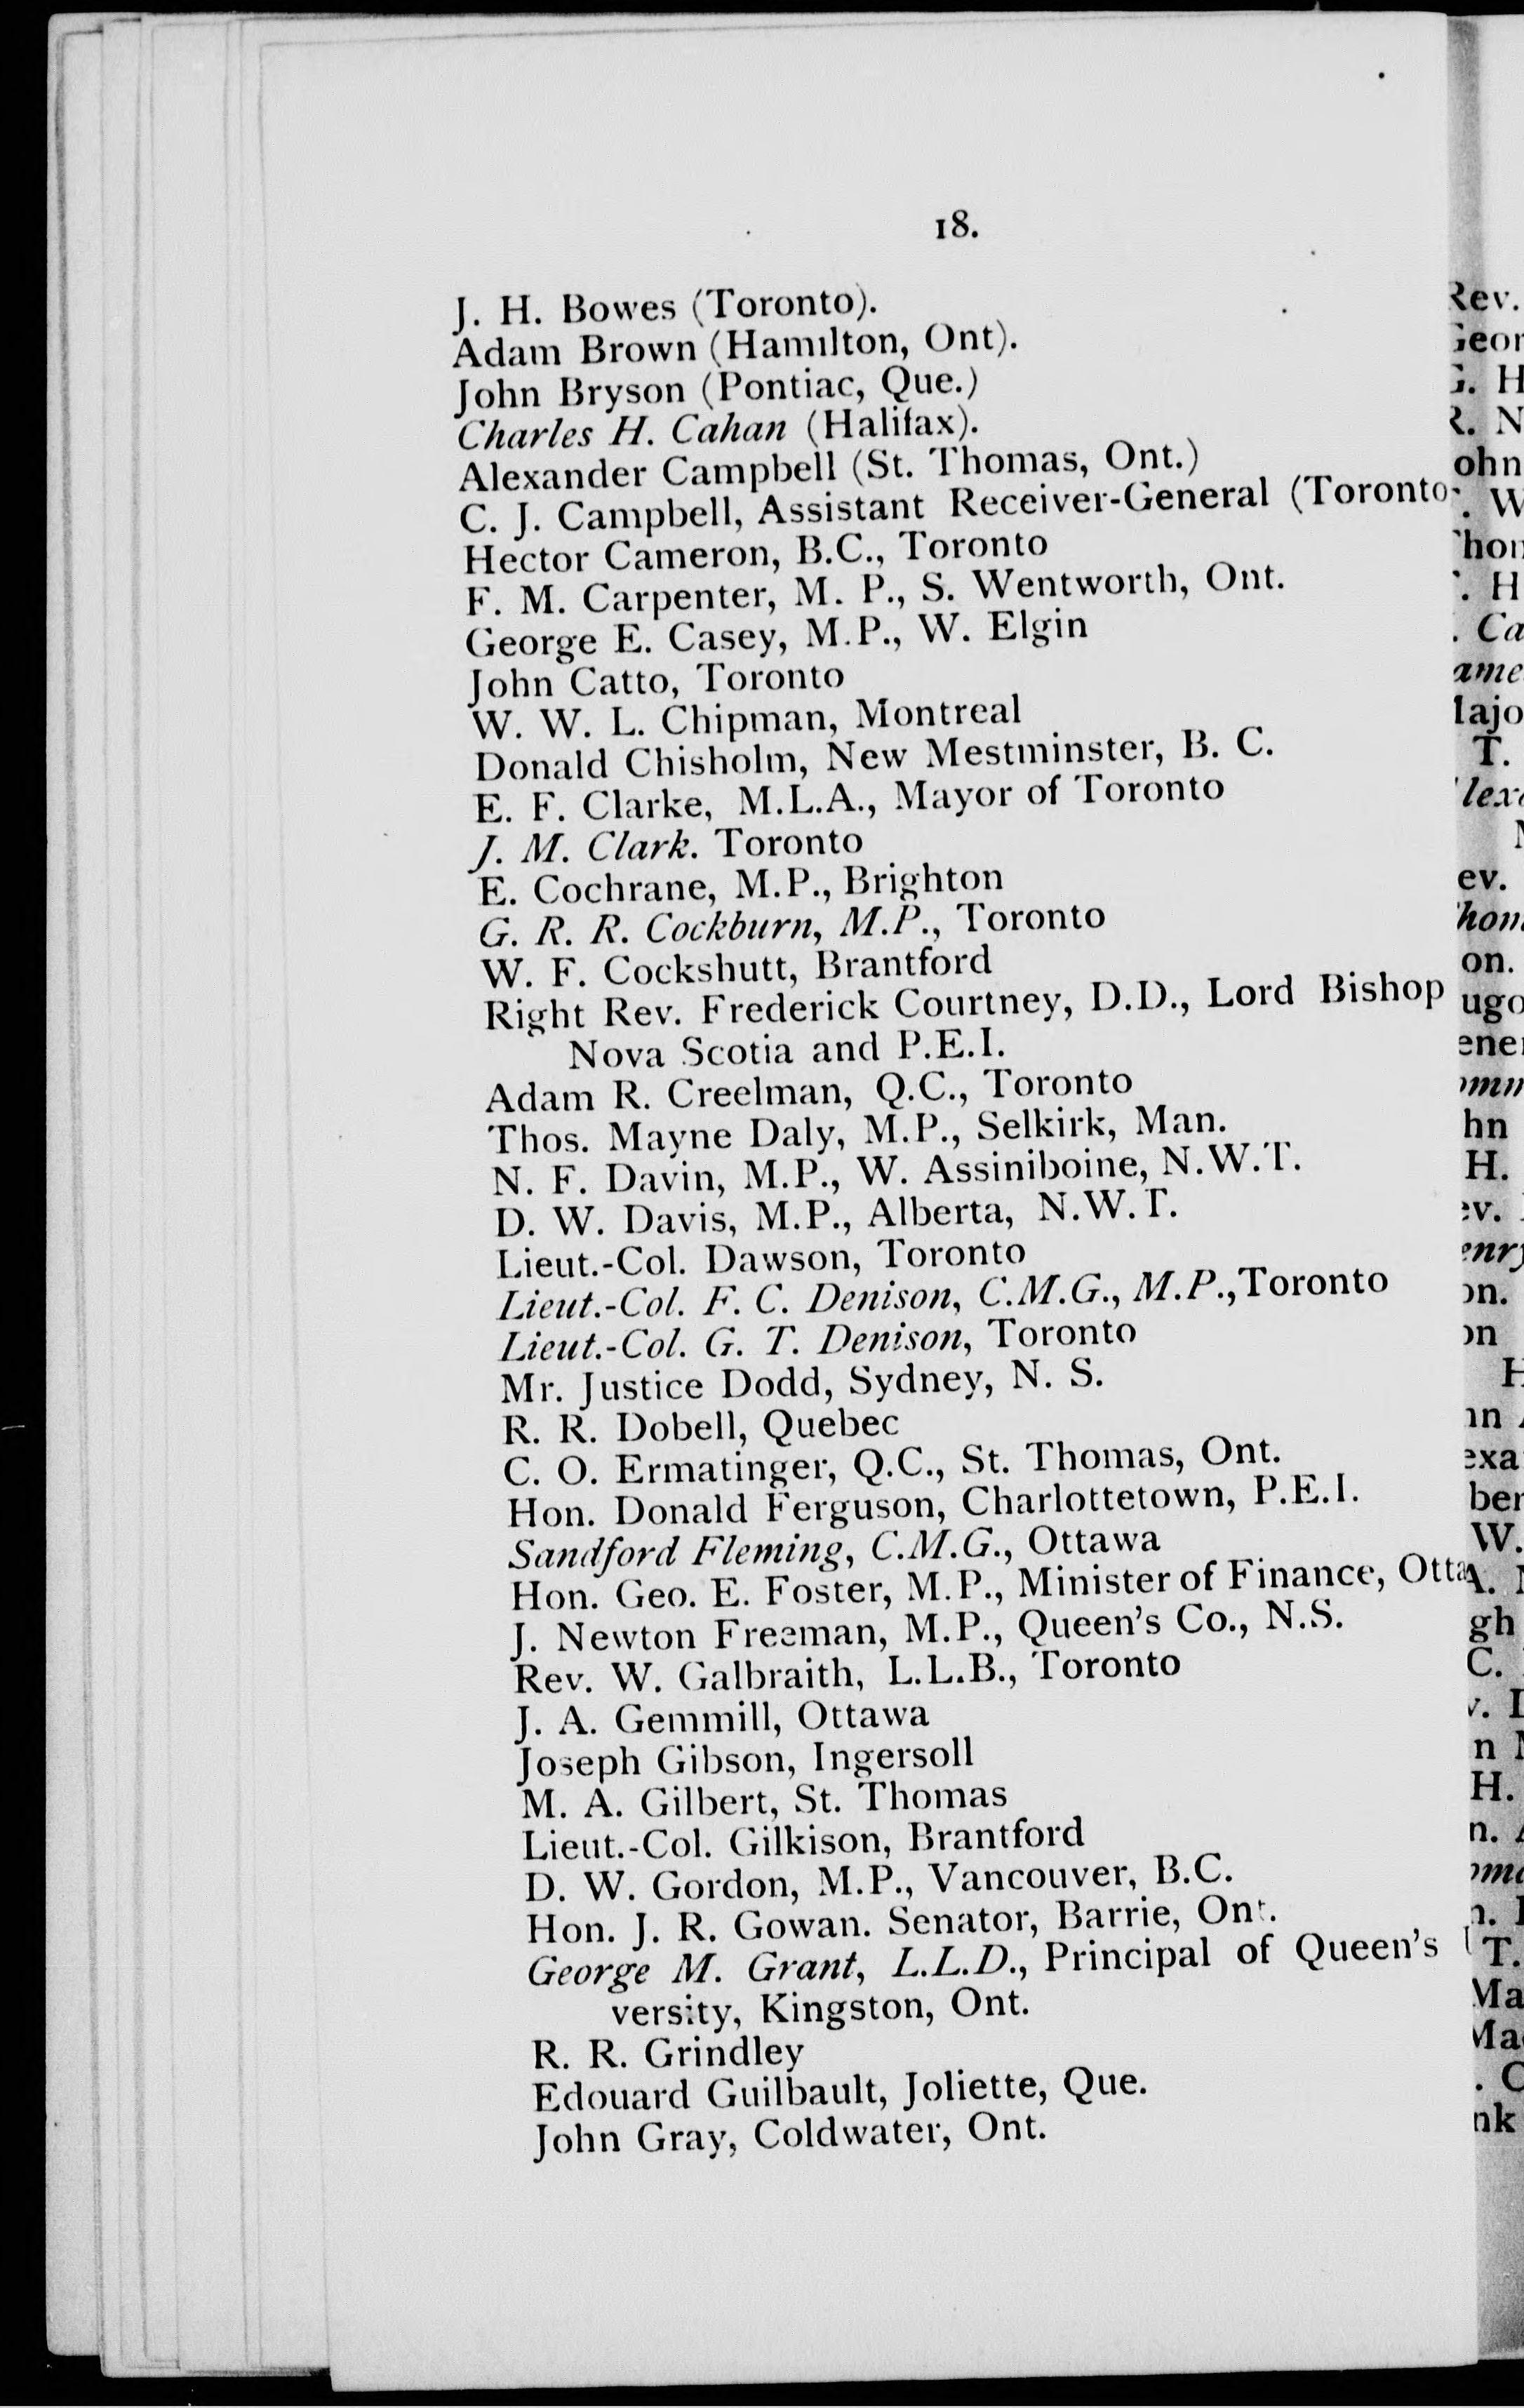 18.
J. H. Bowes (Toronto).
Adam Brown (Hamilton, Ont).
John Bryson (Pontiac, Que.)
Charles H. Cahan (Halifax).
Alexander Campbell (St. Thomas, Ont.)
C. J. Campbell, Assistant Receiver-General (Toronto
Hector Cameron, B.C., Toronto
F. M. Carpenter, M. P., S. Wentworth, Ont.
George E. Casey, M.P., W. Elgin
John Catto, Toronto
W. W. L. Chipman, Montreal
Donald Chisholm, New Mestminster, B. C.
E. F. Clarke, M.L.A., Mayor of Toronto
J. M. Clark. Toronto
E. Cochrane, M.P., Brighton
G. R. R. Cockburn, M.P., Toronto
W. F. Cockshutt, Brantford
Right Rev. Frederick Courtney, D.D., Lord Bishop
Nova Scotia and P.E.I.
Adam R. Creelman, Q.C., Toronto
Thos. Mayne Daly, M.P., Selkirk, Man.
N. F. Davin, M.P., W. Assiniboine, N.W.T.
D. W. Davis, M.P., Alberta, N.W.T.
Lieut.-Col. Dawson, Toronto
Lieut.-Col. F. C. Denison, C.M.G., M.P., Toronto
Lieut.-Col. G. T. Denison, Toronto
Mr. Justice Dodd, Sydney, N. S.
R. R. Dobell, Quebec
C. O. Ermatinger, Q.C., St. Thomas, Ont.
Hon. Donald Ferguson, Charlottetown, P.E.I.
Sandford Fleming, C.M.G., Ottawa
Hon. Geo. E. Foster, M.P., Minister of Finance, Otta
J. Newton Freeman, M.P., Queen's Co., N.S.
Rev. W. Galbraith, L.L.B., Toronto
J. A. Gemmill, Ottawa
Joseph Gibson, Ingersoll
M. A. Gilbert, St. Thomas
Lieut.-Col. Gilkison, Brantford
D. W. Gordon, M.P., Vancouver, B.C.
Hon. J. R. Gowan. Senator, Barrie, Ont.
George M. Grant, L.L.D., Principal of Queen's
versity, Kingston, Ont.
R. R. Grindley
Edouard Guilbault, Joliette, Que.
John Gray, Coldwater, Ont.